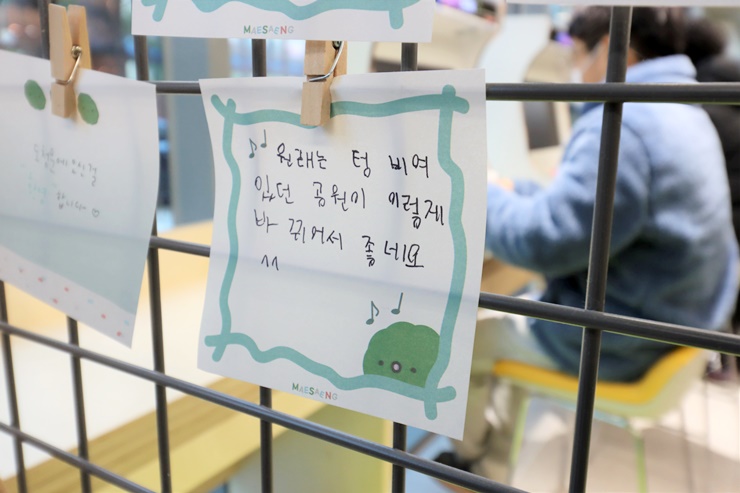 MAESAENG
원래는 텅 비여
있던 공원이 이렇게
바뀌어서 좋네요
^^
MAESAENG